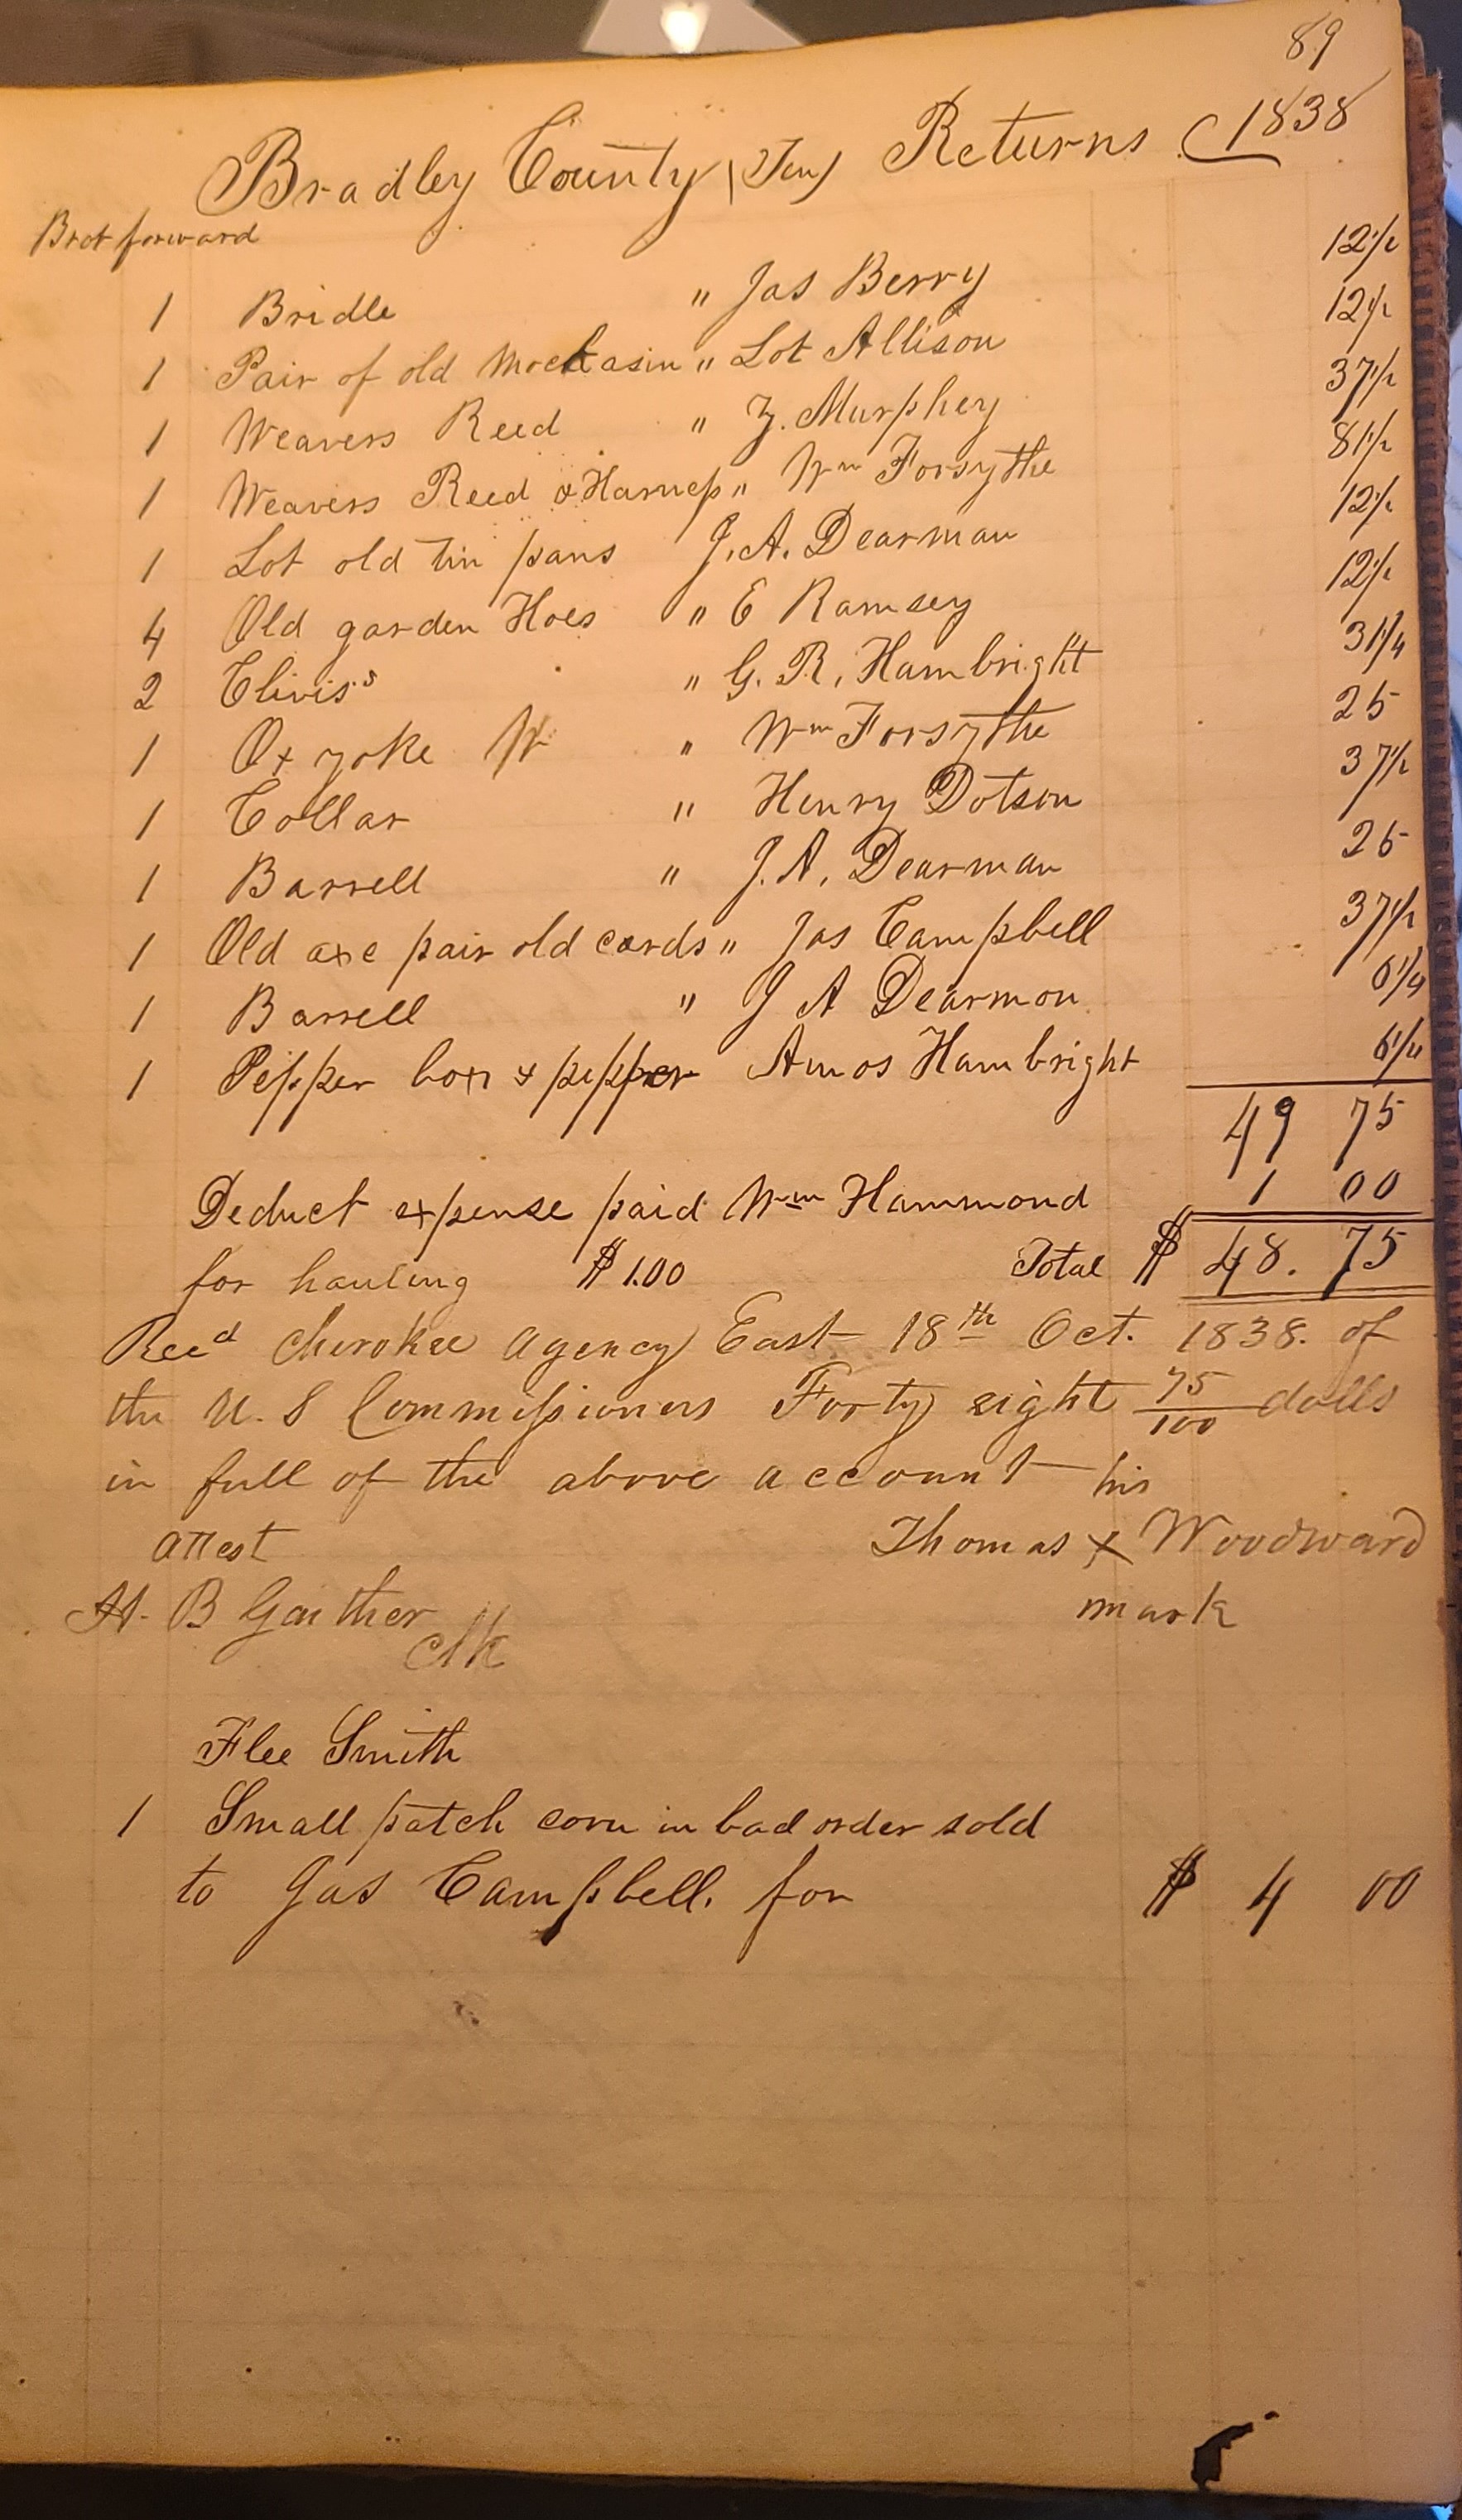 89
Bradley County (Ten) Returns 1838
Brot forward
1 Bridle " Jas Berry 12½
1 Pair of old Mockasin " Lot Allison 12½
1 Weavers Reed " Z. Murphey 37½
1 Weavers Reed & Harness " Wm Forsythe 81½
1 Lot old tin pans J. A. Dearman 12½
4 Old garden Hoes " E Ramsey 12½
2 Clivis's " G. R. Hambright 31¼
1 Ox yoke W " Wm Forsythe 25
1 Collar " Henry Dotson 37½
1 Barrell " J. A. Dearman 25
1 Old axe pair old cards " Jas Campbell 37½
1 Barrell " J A Dearmon 6¼
1 Pepper box & pepper Amos Hambright 6¼
49 75
Deduct expense paid Wm Hammond 1 00
for hauling $1.00 Total $ 48. 75
Recd Cherokee Agency East 18th Oct. 1838. of
the U. S Commissioners Forty eight 75/100 dolls
in full of the above account his
attest Thomas x Woodward
A. B Gaither mark
Clk
Flee Smith
1 Small patch corn in bad order sold
to Jas Campbell. for $ 4 00